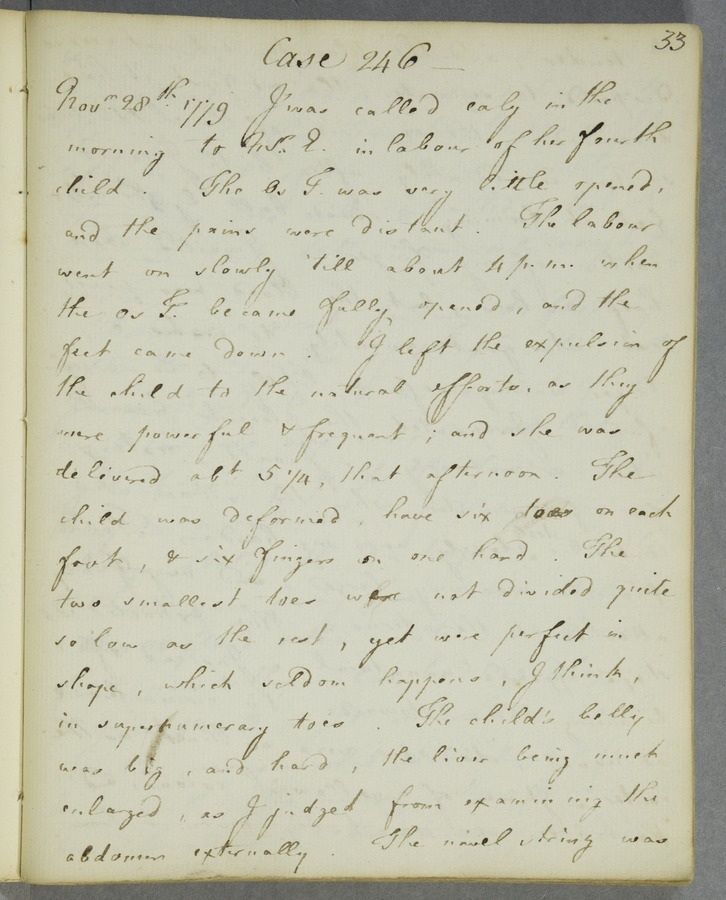 33
Case 246
Novr. 28th 1779 I was called ealy in the
morning to Mrs. E. in labour of her fourth
child. The Os T. was very little opened,
and the pains were distant. The labour
went on slowly 'till about 4 p.m. when
the os T. became fully opened, and the
feet came down. I left the expulsion of
the child to the natural efforts, as they
were powerful & frequent; and she was
delivered abt 5 1/4, that afternoon. The
child was deformed, have six toes on each
foot, & six fingers on one hand. The
two smallest toes were not divided quite
so low as the rest, yet were perfect in
shape, which seldom happens, I think,
in supernumerary toes. The child's belly
was big, and hard, the liver being much
enlarged, as I judged from examining the
abdomen externally. The navel string was